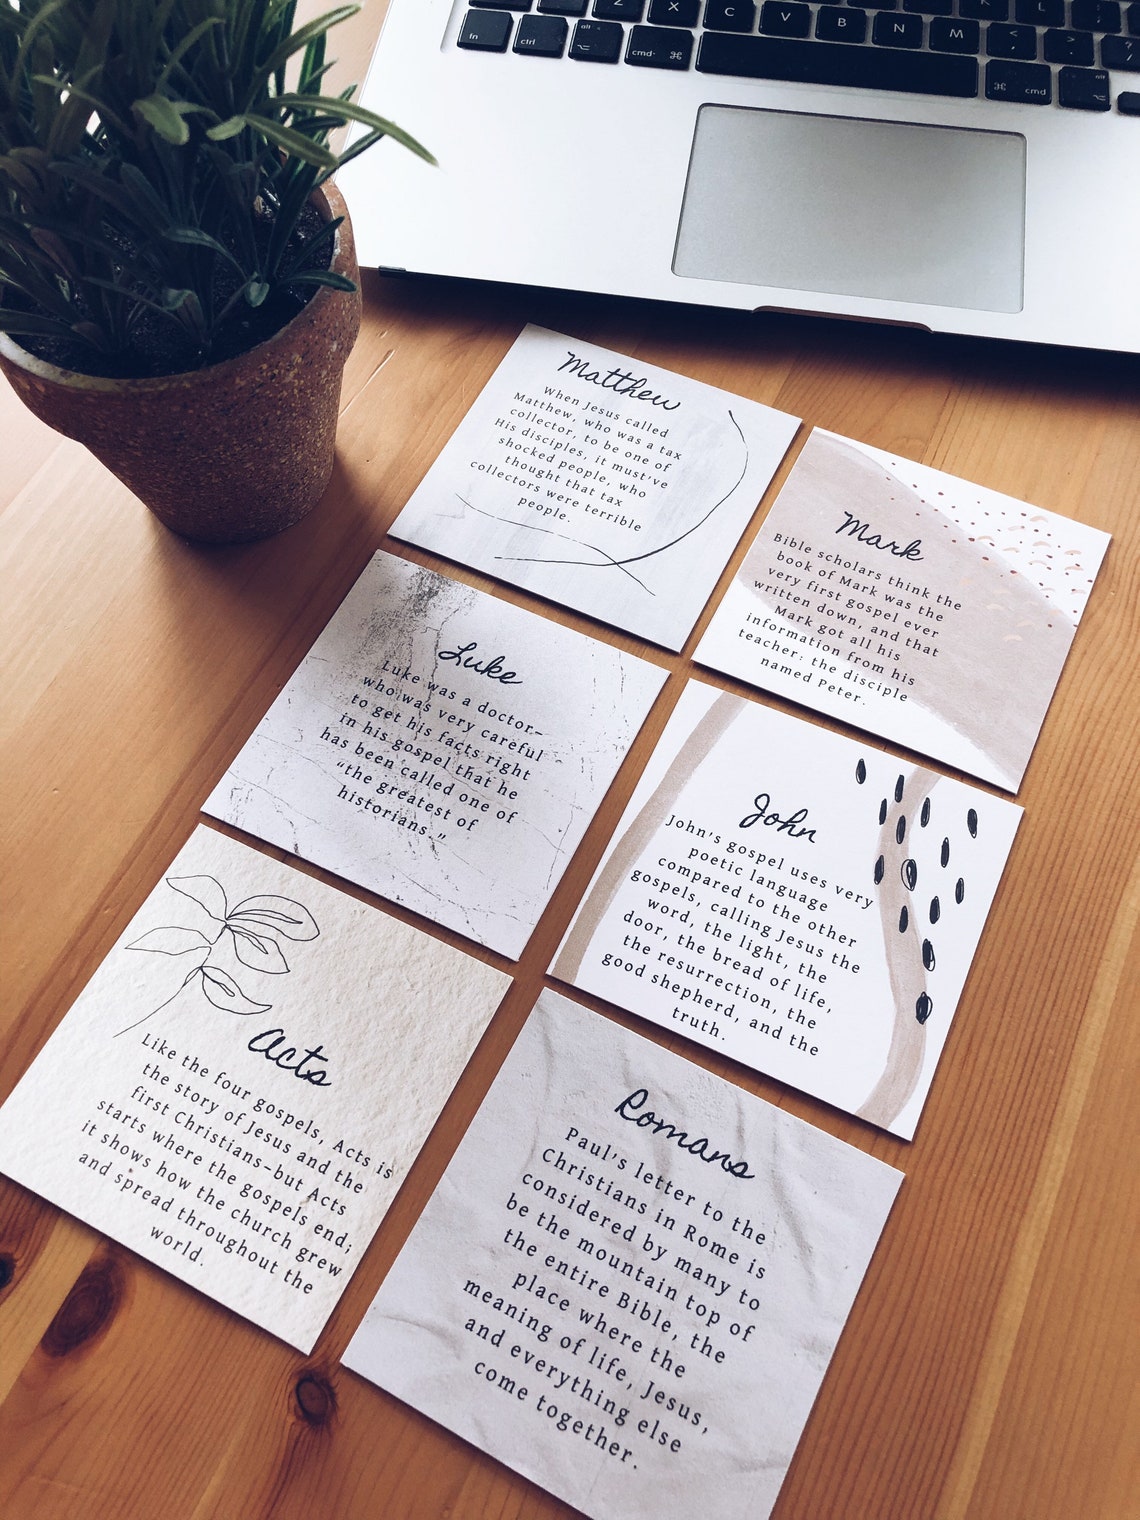 Z X C V B N M < , > . ?
fn ctrl alt option cmd ⌘ ⌘ cmd alt
Matthew
When Jesus called
Matthew, who was a tax
collector, to be one of
His disciples, it must've
shocked people, who
thought that tax
collectors were terrible
people.
Mark
Bible scholars think the
book of Mark was the
very first gospel ever
written down, and that
Mark got all his
information from his
teacher: the disciple
named Peter.
Luke
Luke was a doctor–
who was very careful
to get his facts right
in his gospel that he
has been called one of
“the greatest of
historians.”
John
John's gospel uses very
poetic language
compared to the other
gospels, calling Jesus the
word, the light, the
door, the bread of life,
the resurrection, the
good shepherd, and the
truth.
Acts
Like the four gospels, Acts is
the story of Jesus and the
first Christians–but Acts
starts where the gospels end;
it shows how the church grew
and spread throughout the
world.
Romans
Paul's letter to the
Christians in Rome is
considered by many to
be the mountain top of
the entire Bible, the
place where the
meaning of life, Jesus,
and everything else
come together.